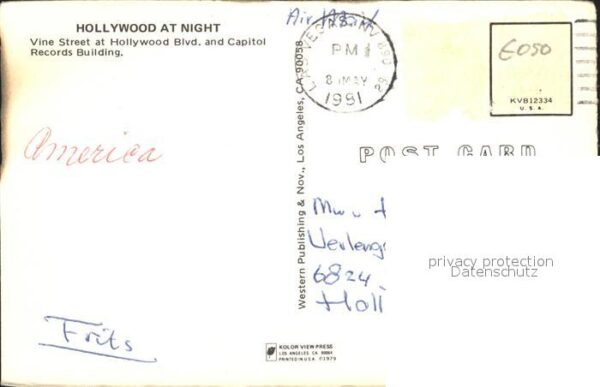 HOLLYWOOD AT NIGHT
Vine Street at Hollywood Blvd. and Capitol
Records Building.
America
Frits
Western Publishing & Nov., Los Angeles, CA 90058
KOLOR VIEW PRESS
LOS ANGELES, CA
PRINTED IN U.S.A. ©1979
Air Mail
LAS VEGAS, NV 890
PM
8 MAY
1991
E050
KVB12334
U.S.A.
POST CARD
6824
Holl
privacy protection
Datenschutz